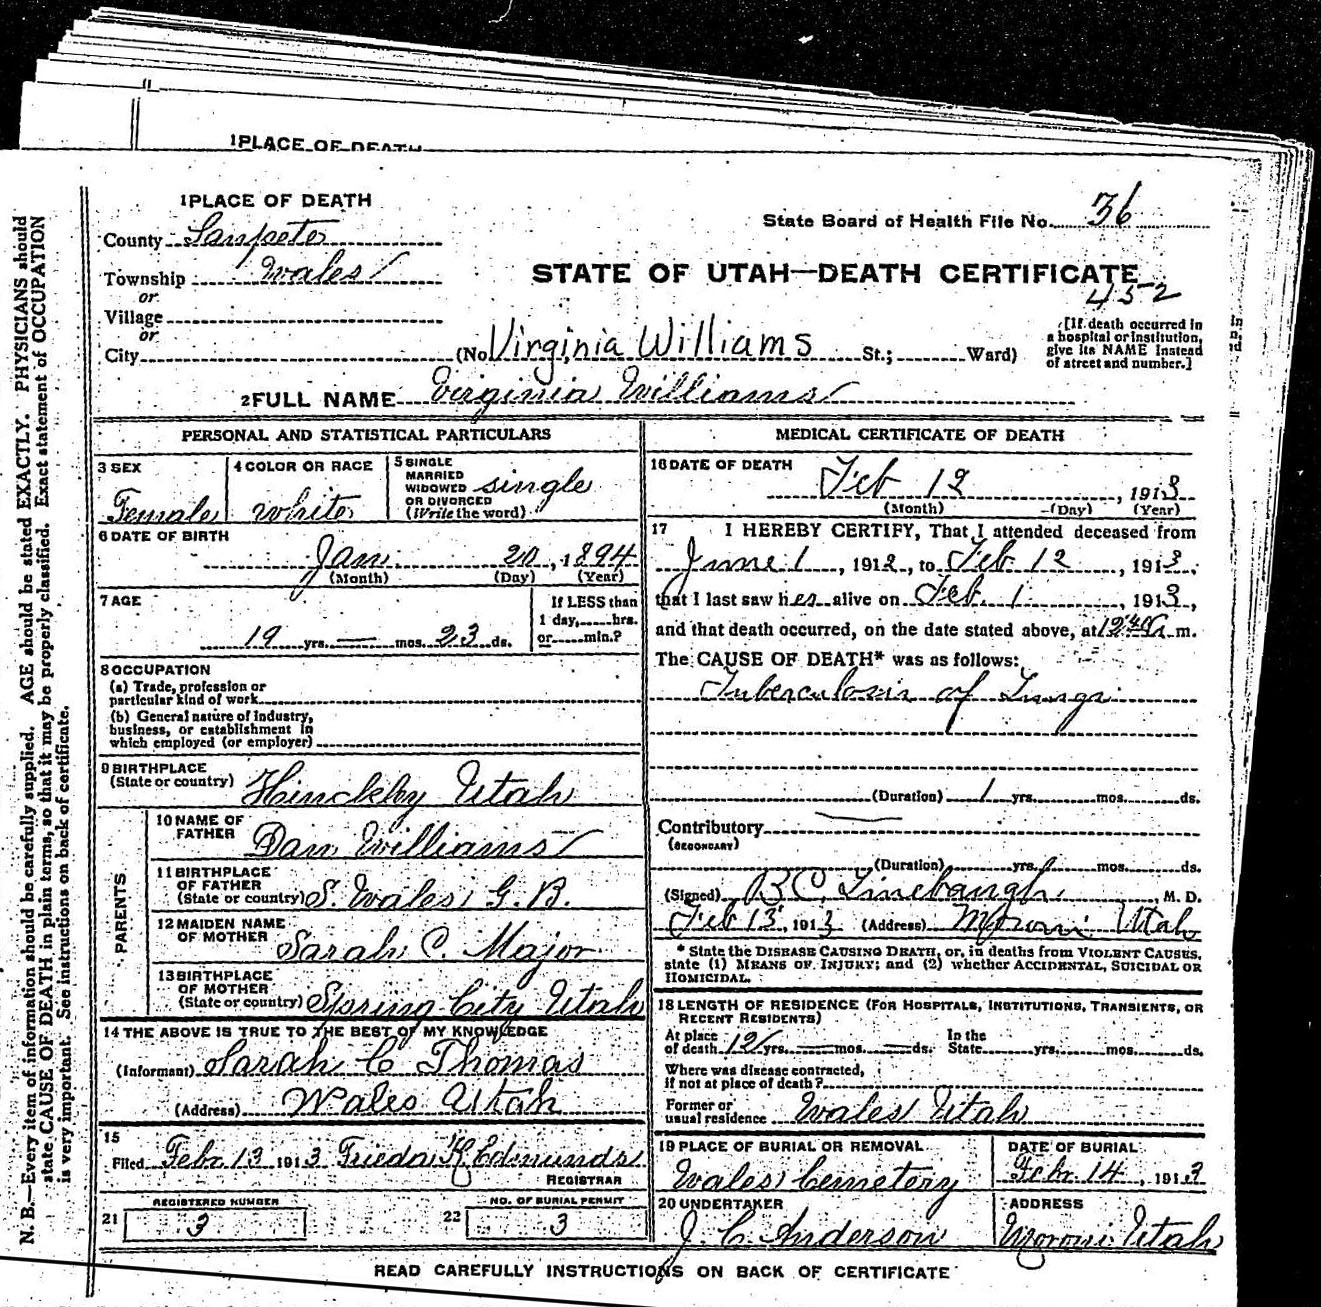 1 PLACE OF DEATH
1 PLACE OF DEATH
State Board of Health File No. 36
County Sanpete
Township Wales
STATE OF UTAH—DEATH CERTIFICATE
452
or
Village
or
City (No. Virginia Williams St.; Ward)
[If death occurred in a hospital or institution, give its NAME instead of street and number.]
2 FULL NAME Virginia Williams
PERSONAL AND STATISTICAL PARTICULARS
3 SEX
Female
4 COLOR OR RACE
White
5 SINGLE
MARRIED
WIDOWED
OR DIVORCED
(Write the word)
single
6 DATE OF BIRTH
Jan. 20, 1894
(Month) (Day) (Year)
7 AGE
19 yrs. — mos. 23 ds.
If LESS than
1 day, hrs.
or min.?
8 OCCUPATION
(a) Trade, profession or
particular kind of work
(b) General nature of industry,
business, or establishment in
which employed (or employer)
9 BIRTHPLACE
(State or country) Hinckley Utah
PARENTS
10 NAME OF
FATHER Dan Williams
11 BIRTHPLACE
OF FATHER
(State or country) S. Wales G. B.
12 MAIDEN NAME
OF MOTHER Sarah C. Major
13 BIRTHPLACE
OF MOTHER
(State or country) Spring City Utah
14 THE ABOVE IS TRUE TO THE BEST OF MY KNOWLEDGE
(Informant) Sarah C Thomas
(Address) Wales Utah
15
Filed Feb. 13 1913 Frieda K Edmunds
REGISTRAR
REGISTERED NUMBER
21 3
NO. OF BURIAL PERMIT
22 3
MEDICAL CERTIFICATE OF DEATH
16 DATE OF DEATH
Feb 12, 1913
(Month) (Day) (Year)
17 I HEREBY CERTIFY, That I attended deceased from
June 1, 1912, to Feb 12, 1913,
that I last saw her alive on Feb. 1, 1913,
and that death occurred, on the date stated above, at 12 m.
The CAUSE OF DEATH* was as follows:
Tuberculosis of Lungs
(Duration) 1 yrs. mos. ds.
Contributory
(SECONDARY)
(Duration) yrs. mos. ds.
(Signed) B C Linebaugh, M. D.
Feb 13, 1913 (Address) Moroni Utah
* State the DISEASE CAUSING DEATH, or, in deaths from VIOLENT CAUSES,
state (1) MEANS OF INJURY; and (2) whether ACCIDENTAL, SUICIDAL OR
HOMICIDAL.
18 LENGTH OF RESIDENCE (FOR HOSPITALS, INSTITUTIONS, TRANSIENTS, OR
RECENT RESIDENTS)
At place
of death yrs. — mos. — ds.
In the
State yrs. mos. ds.
Where was disease contracted,
if not at place of death?
Former or
usual residence Wales Utah
19 PLACE OF BURIAL OR REMOVAL
Wales Cemetery
DATE OF BURIAL
Feb. 14, 1913
20 UNDERTAKER
J. C. Anderson
ADDRESS
Moroni Utah
READ CAREFULLY INSTRUCTIONS ON BACK OF CERTIFICATE
N. B.—Every item of information should be carefully supplied. AGE should be stated EXACTLY. PHYSICIANS should
state CAUSE OF DEATH in plain terms, so that it may be properly classified. Exact statement of OCCUPATION
is very important. See instructions on back of certificate.